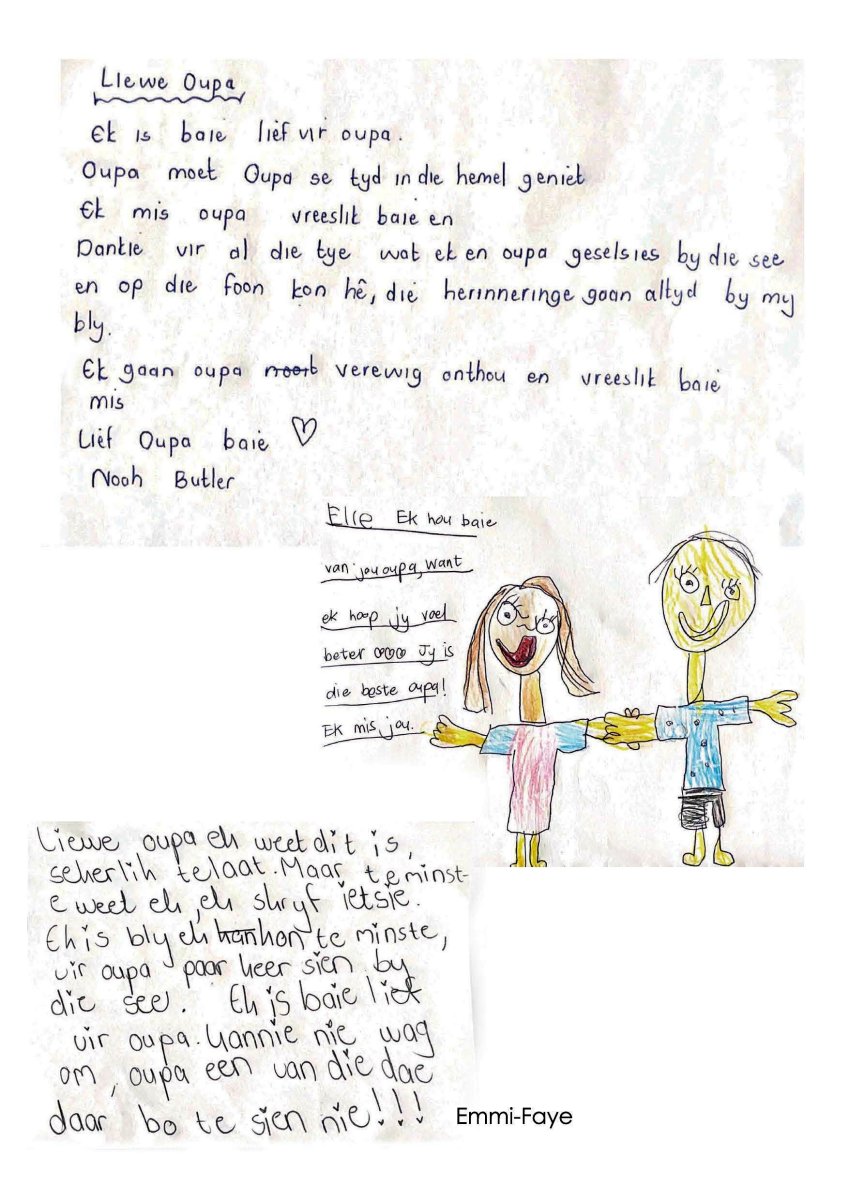 Liewe Oupa
Ek is baie lief vir oupa.
Oupa moet Oupa se tyd in die hemel geniet
Ek mis oupa vreeslik baie en
Dankie vir al die tye wat ek en oupa geselsies by die see
en op die foon kon hê, die herinneringe gaan altyd by my
bly.
Ek gaan oupa nooit verewig onthou en vreeslik baie
mis
Lief Oupa baie ♡
Noah Butler
Elle Ek hou baie
van jou oupa, want
ek hoop jy voel
beter Jy is
die beste oupa!
Ek mis jou.
Liewe oupa ek weet dit is,
sekerlik telaat. Maar teminst-
e weet ek, ek skryf ietsie.
Ek is bly ek kan kon te minste,
vir oupa paar keer sien by
die see. Ek is baie lief
vir oupa. Kannie nie wag
om, oupa een van die dae
daar bo te sien nie!!!
Emmi-Faye